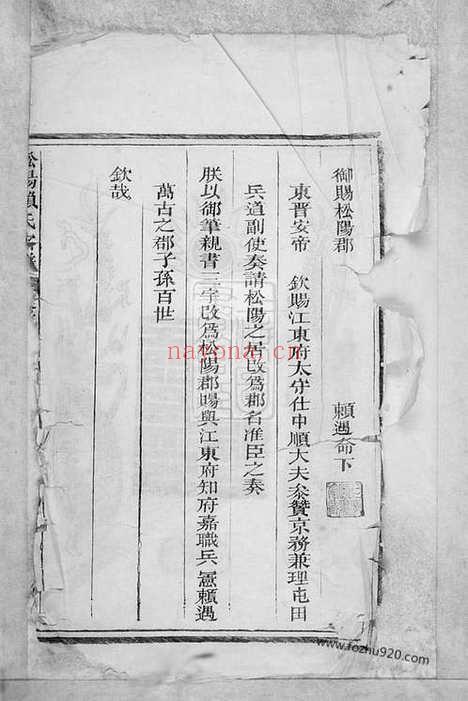 御賜松陽郡
頼遇命下
東晋安帝 欽賜江東府太守仕中順大夫叅贊京務兼理屯田
兵道副使奏請松陽之居改爲郡名准臣之奏
朕以御筆親書三字改爲松陽郡賜與江東府知府嘉職兵憲頼遇
萬古之郡子孫百世
欽哉
松陽頼氏
nayona.cn
www.fozhu920.com